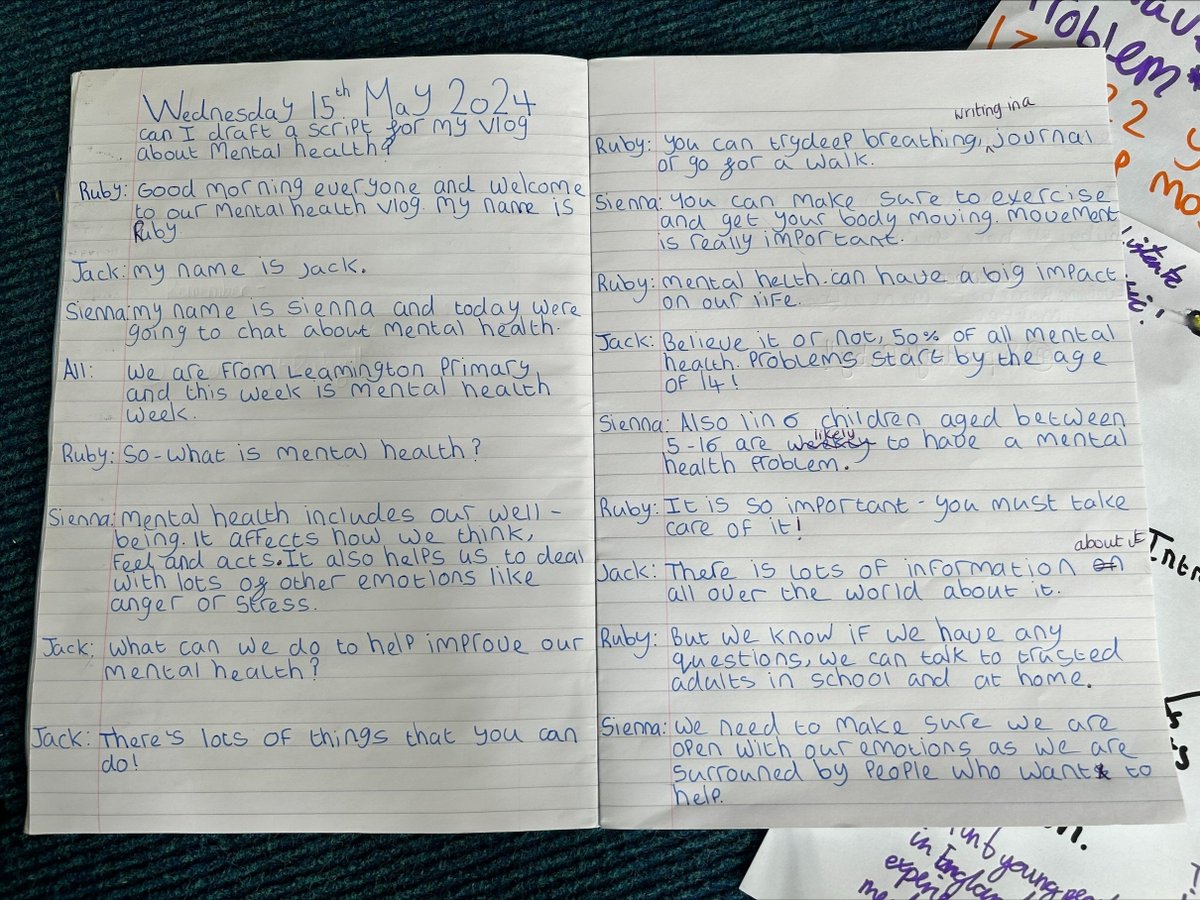 Wednesday 15th May 2024
can I draft a script for my vlog
about Mental health?
Ruby: Good morning everyone and welcome
to our Mental health vlog. My name is
Ruby
Jack: my name is Jack.
Sienna: my name is Sienna and today were
going to chat about mental health.
All: We are from Leamington Primary
and this week is mental health
week.
Ruby: So-what is mental health?
Sienna: Mental health includes our well-
being. It affects how we think,
feel and acts. It also helps us to deal
with lots of other emotions like
anger or stress.
Jack: What can we do to help improve our
mental health?
Jack: There's lots of things that you can
do!
writing in a
Ruby: You can try deep breathing, journal
or go for a walk.
Sienna: You can make sure to exercise
and get your body moving. Movement
is really important.
Ruby: mental helth can have a big impact
on our life.
Jack: Believe it or not, 50% of all mental
health problems start by the age
of 14!
Sienna: Also 1 in 6 children aged between
likely
5-16 are to have a mental
health problem.
Ruby: It is so important - you must take
care of it!
about it
Jack: There is lots of information on
all over the world about it.
Ruby: But we know if we have any
questions, we can talk to trusted
adults in school and at home.
Sienna: We need to make sure we are
open with our emotions as we are
surrouned by people who want to
help.
Problem
22
in England